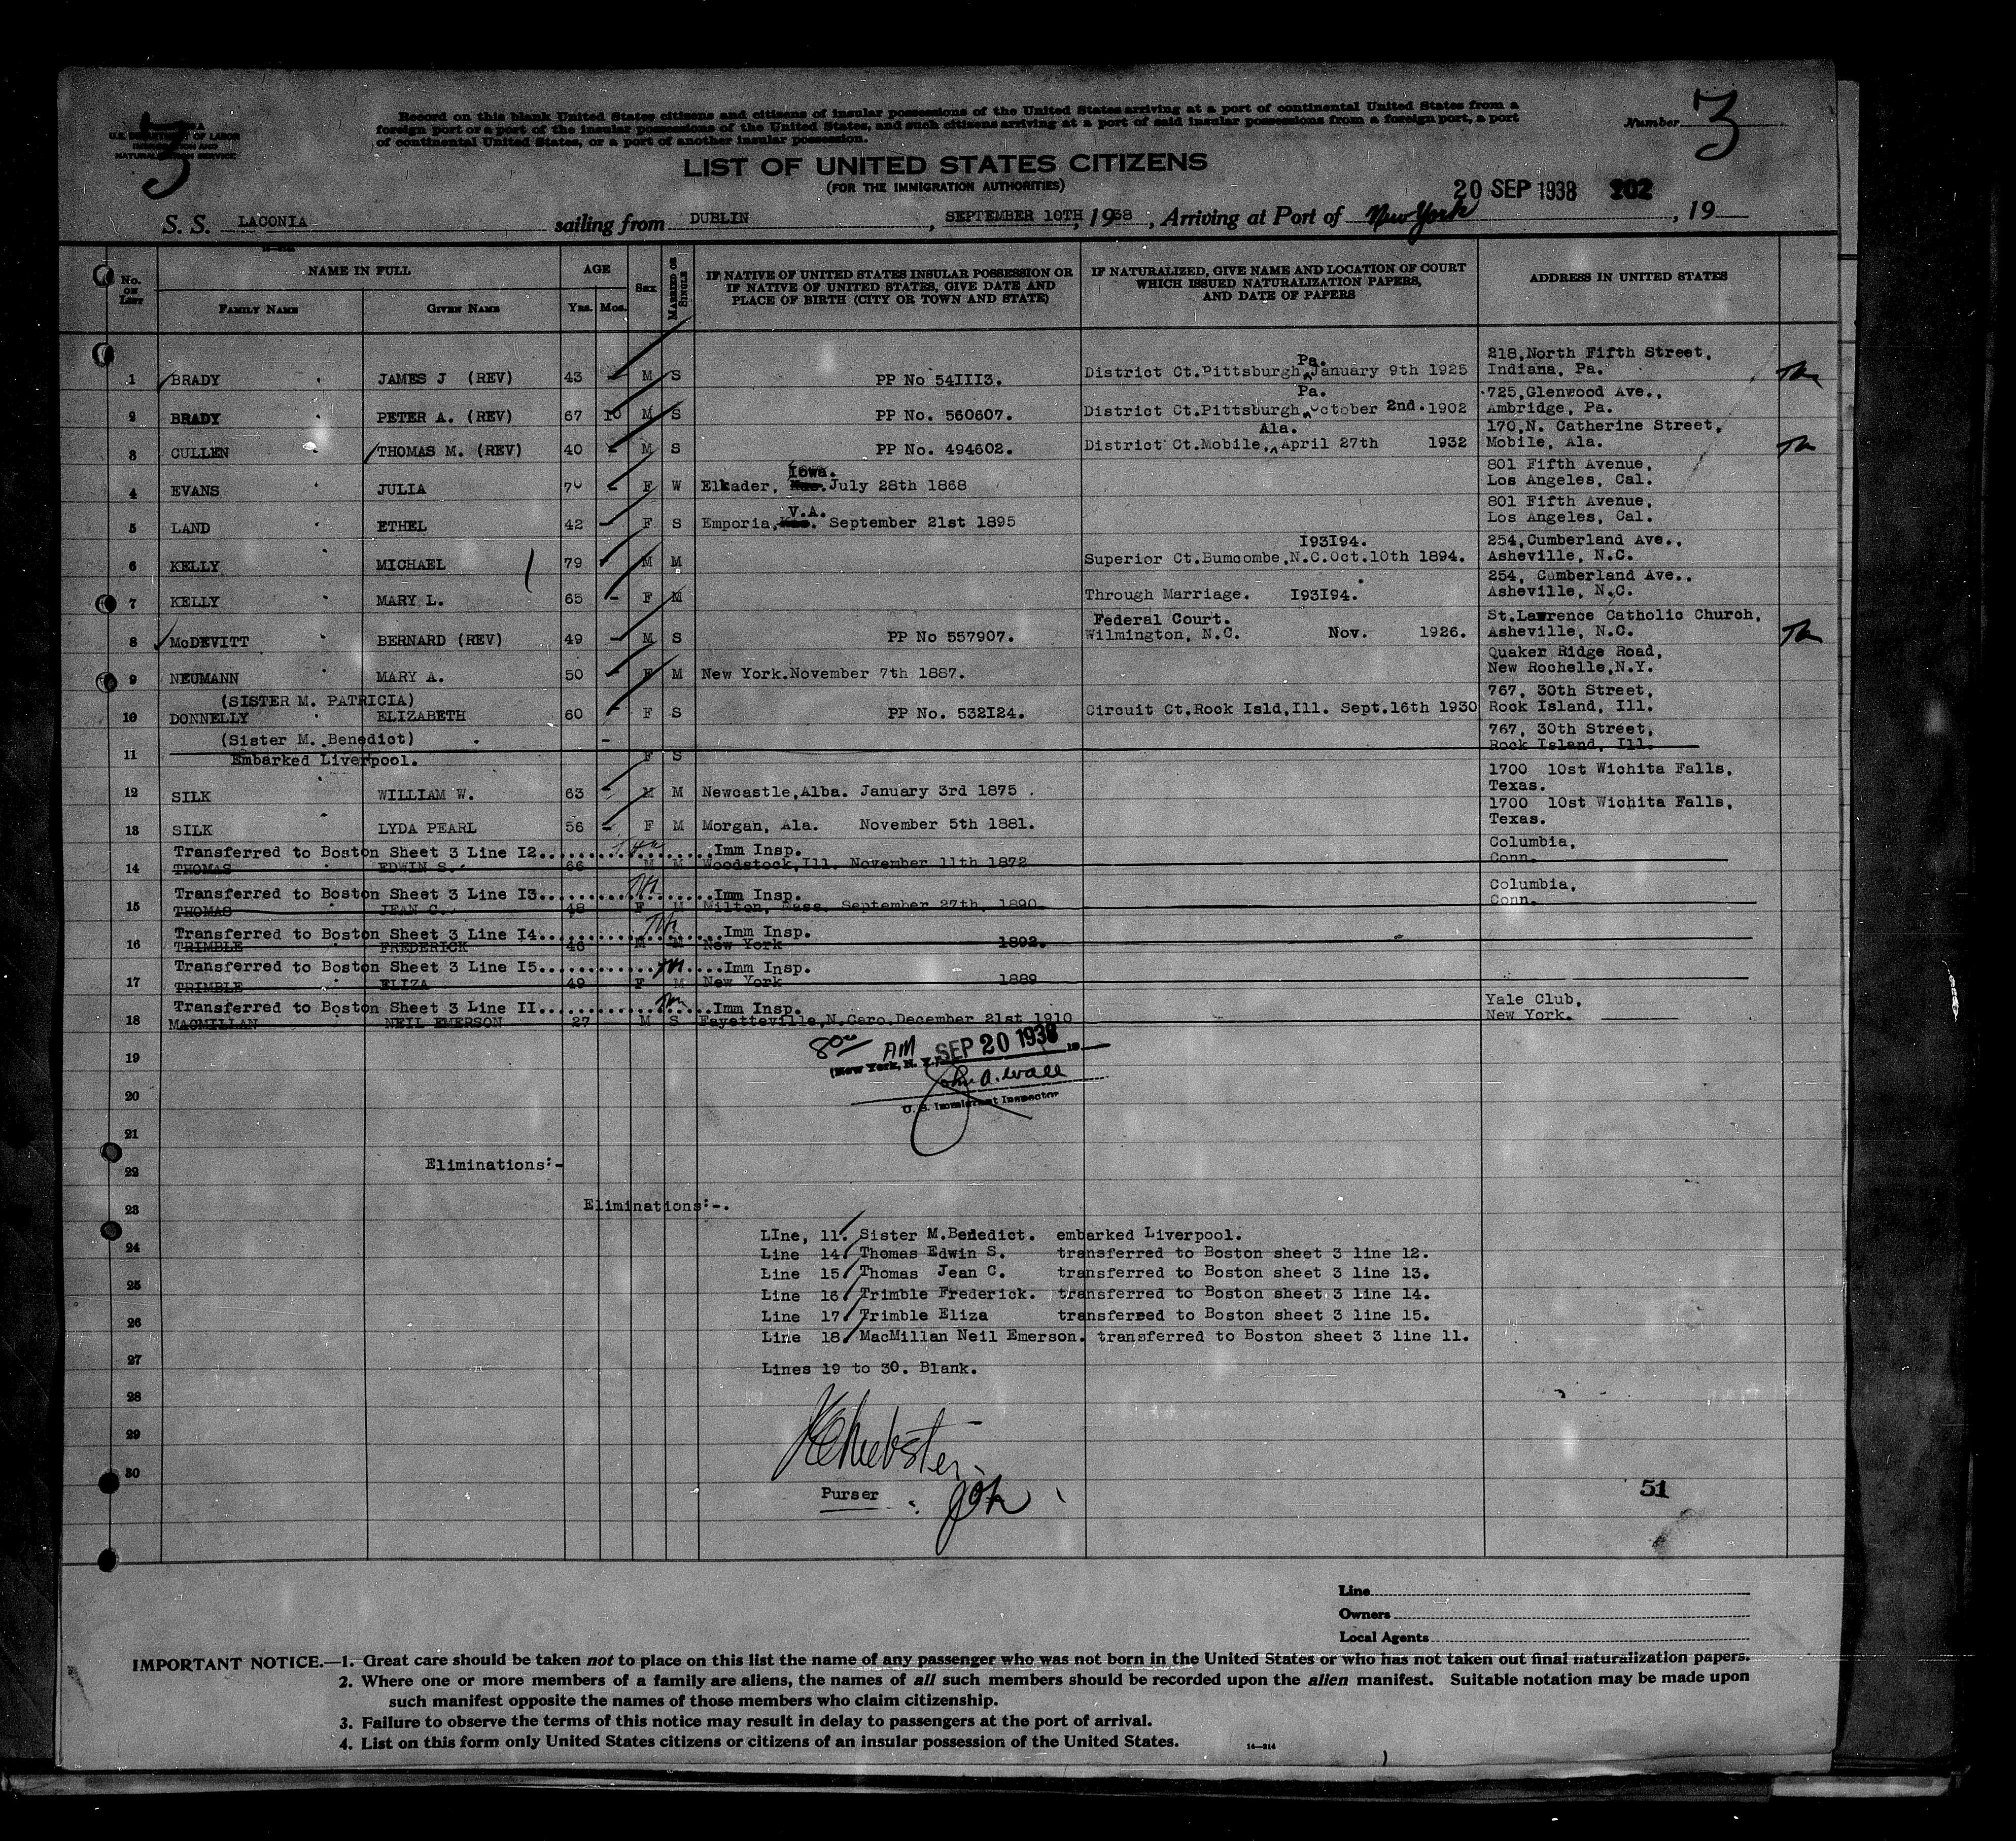 3
U.S. DEPARTMENT OF LABOR
IMMIGRATION AND
NATURALIZATION SERVICE
Record on this blank United States citizens and citizens of insular possessions of the United States arriving at a port of continental United States from a
foreign port or a port of the insular possessions of the United States, and such citizens arriving at a port of said insular possessions from a foreign port, a port
of continental United States, or a port of another insular possession.
Number 3
LIST OF UNITED STATES CITIZENS
(FOR THE IMMIGRATION AUTHORITIES)
20 SEP 1938 202
S. S. LACONIA sailing from DUBLIN , SEPTEMBER 10TH, 1938 , Arriving at Port of New York , 19
No. ON LIST
NAME IN FULL
FAMILY NAME GIVEN NAME
AGE
YRS. MOS.
SEX
MARRIED OR SINGLE
IF NATIVE OF UNITED STATES INSULAR POSSESSION OR
IF NATIVE OF UNITED STATES, GIVE DATE AND
PLACE OF BIRTH (CITY OR TOWN AND STATE)
IF NATURALIZED, GIVE NAME AND LOCATION OF COURT
WHICH ISSUED NATURALIZATION PAPERS,
AND DATE OF PAPERS
ADDRESS IN UNITED STATES
Pa. 218,North Fifth Street,
1 BRADY JAMES J (REV) 43 - M S PP No 54III3. District Ct.Pittsburgh, January 9th 1925 Indiana, Pa.
Pa. 725,Glenwood Ave.,
2 BRADY PETER A. (REV) 67 10 M S PP No. 560607. District Ct.Pittsburgh, October 2nd.1902 Ambridge, Pa.
Ala. 170,N. Catherine Street,
3 CULLEN THOMAS M. (REV) 40 - M S PP No. 494602. District Ct.Mobile, April 27th 1932 Mobile, Ala.
Iowa. 801 Fifth Avenue,
4 EVANS JULIA 70 - F W Elkader, July 28th 1868 Los Angeles, Cal.
V.A. 801 Fifth Avenue,
5 LAND ETHEL 42 - F S Emporia, September 21st 1895 Los Angeles, Cal.
I93I94. 254,Cumberland Ave.,
6 KELLY MICHAEL 79 M M Superior Ct.Bumcombe,N.C.Oct.10th 1894. Asheville, N.C.
254, Cumberland Ave.,
7 KELLY MARY L. 65 - F M Through Marriage. I93I94. Asheville, N.C.
Federal Court. St.Lawrence Catholic Church,
8 McDEVITT BERNARD (REV) 49 - M S PP No 557907. Wilmington, N.C. Nov. 1926. Asheville, N.C.
Quaker Ridge Road,
9 NEUMANN MARY A. 50 - F M New York.November 7th 1887. New Rochelle,N.Y.
(SISTER M. PATRICIA) 767, 30th Street,
10 DONNELLY ELIZABETH 60 - F S PP No. 532I24. Circuit Ct.Rock Isld,Ill. Sept.16th 1930 Rock Island, Ill.
(Sister M. Benedict) - 767, 30th Street,
11 Embarked Liverpool. F S Rock Island, Ill.
1700 10st Wichita Falls,
12 SILK WILLIAM W. 63 - M M Newcastle,Alba. January 3rd 1875 . Texas.
1700 10st Wichita Falls,
13 SILK LYDA PEARL 56 - F M Morgan, Ala. November 5th 1881. Texas.
Transferred to Boston Sheet 3 Line I2..................Imm Insp. Columbia,
14 THOMAS EDWIN S. 66 M M Woodstock,Ill. November 11th 1872 Conn.
Transferred to Boston Sheet 3 Line I3..................Imm Insp. Columbia,
15 THOMAS JEAN C. 48 F M Milton, Mass. September 27th, 1890 Conn.
Transferred to Boston Sheet 3 Line I4..................Imm Insp.
16 TRIMBLE FREDERICK 46 M M New York 1892.
Transferred to Boston Sheet 3 Line I5..................Imm Insp.
17 TRIMBLE ELIZA 49 F M New York 1889
Transferred to Boston Sheet 3 Line II..................Imm Insp. Yale Club,
18 MACMILLAN NEIL EMERSON 27 M S Fayetteville,N.Caro.December 21st 1910 New York.
19 8 00 AM SEP 20 1938 19
(New York, N. Y.)
John A. Wall
20 U. S. Immigrant Inspector
21
22 Eliminations:-
23 Eliminations:-.
LIne, 11. Sister M.Benedict. embarked Liverpool.
24 Line 14 Thomas Edwin S. transferred to Boston sheet 3 line 12.
Line 15 Thomas Jean C. transferred to Boston sheet 3 line 13.
25 Line 16 Trimble Frederick. transferred to Boston sheet 3 line 14.
26 Line 17 Trimble Eliza transferred to Boston sheet 3 line 15.
Line 18 MacMillan Neil Emerson. transferred to Boston sheet 3 line 11.
27 Lines 19 to 30. Blank.
28
29
30
Purser
51
Line
Owners
Local Agents
IMPORTANT NOTICE.—1. Great care should be taken not to place on this list the name of any passenger who was not born in the United States or who has not taken out final naturalization papers.
2. Where one or more members of a family are aliens, the names of all such members should be recorded upon the alien manifest. Suitable notation may be made upon
such manifest opposite the names of those members who claim citizenship.
3. Failure to observe the terms of this notice may result in delay to passengers at the port of arrival.
4. List on this form only United States citizens or citizens of an insular possession of the United States.
14—214